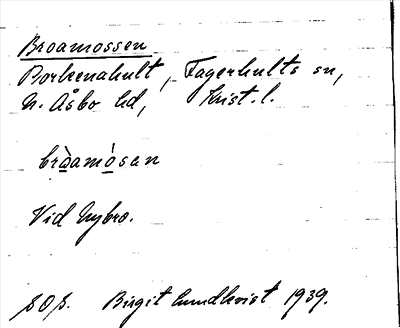 Broamossen
Porkenahult, Fagerhults sn,
N. Åsbo hd, Krist. l.
bròamósan
Vid Nybro.
S.O.S. Birgit Lundkvist 1939.